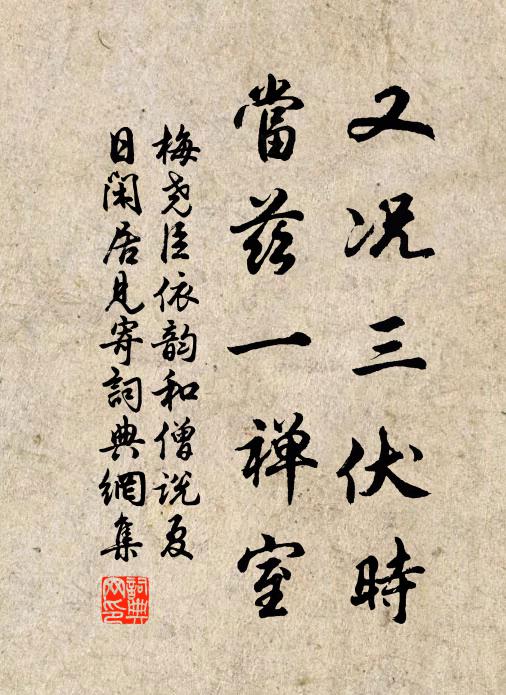 又况三伏時
當茲一禅室
梅尧臣依韵和僧说夏
日闲居见寄詞典網集
詞典網印